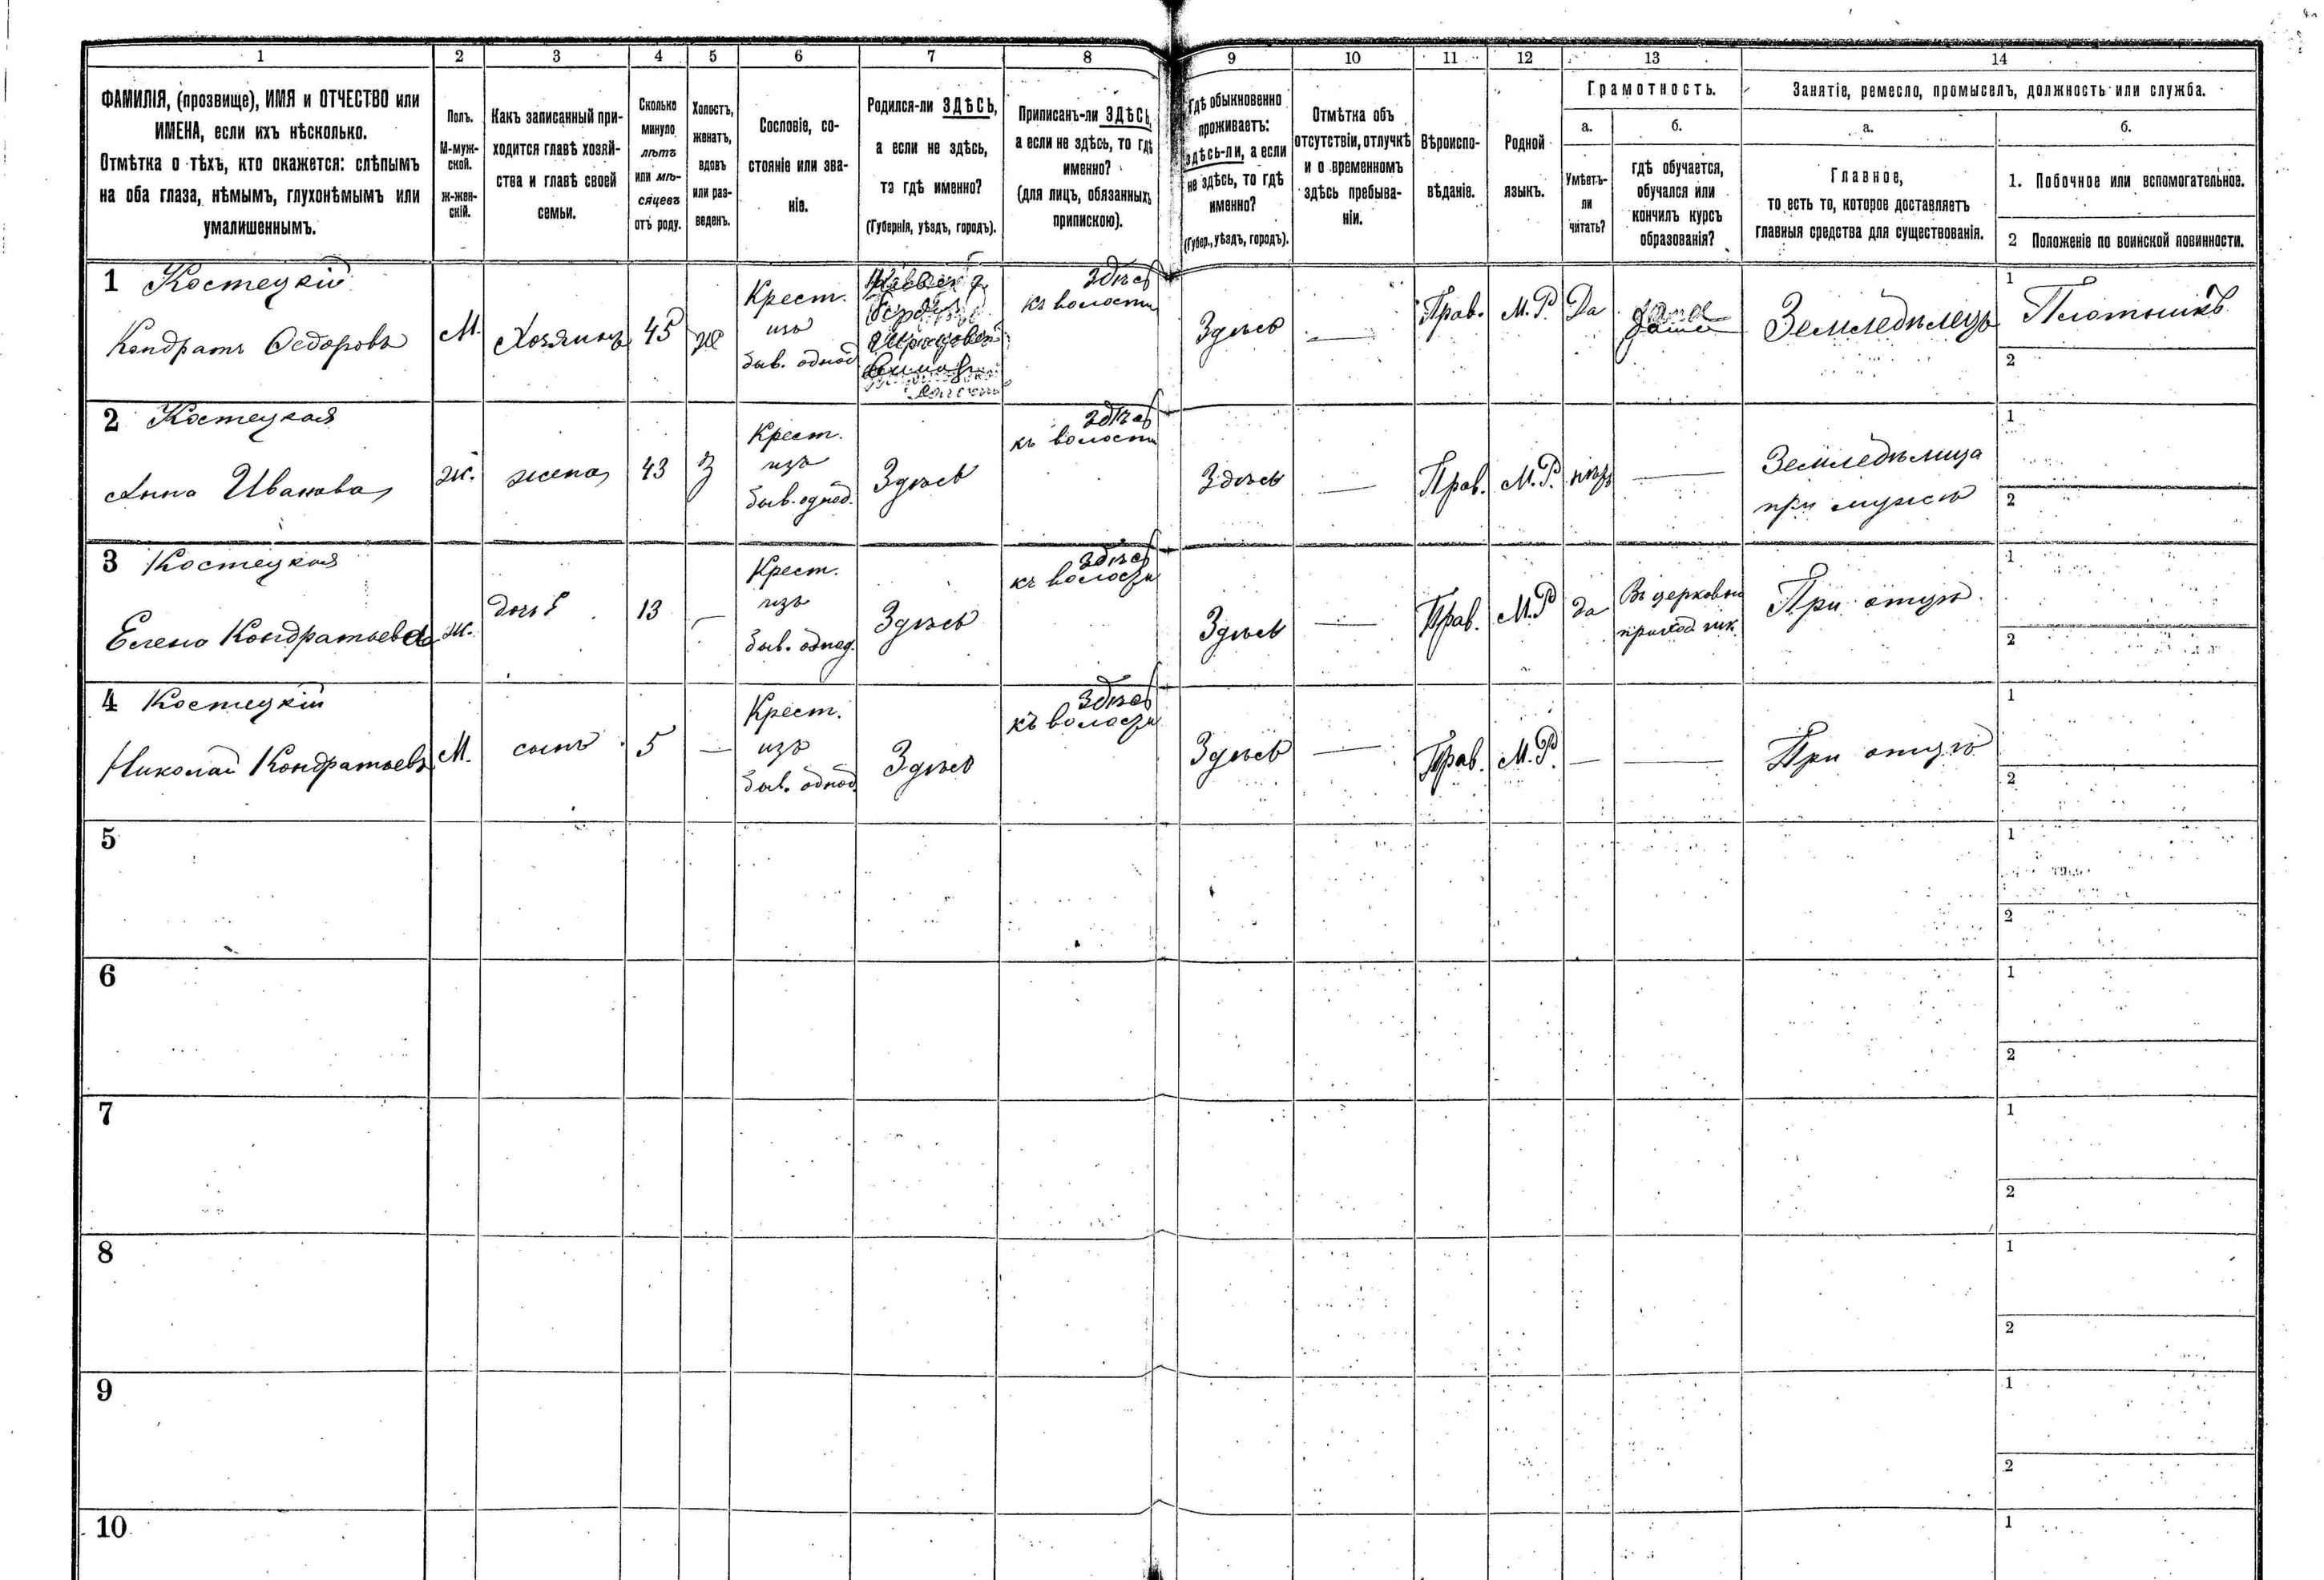 1 2 3 4 5 6 7 8 9 10 11 12 13 14
ФАМИЛІЯ, (прозвище), ИМЯ и ОТЧЕСТВО или
ИМЕНА, если ихъ нѣсколько.
Отмѣтка о тѣхъ, кто окажется: слѣпымъ
на оба глаза, нѣмымъ, глухонѣмымъ или
умалишеннымъ.
Полъ.
М-муж-
ской.
ж-жен-
скій.
Какъ записанный при-
ходится главѣ хозяй-
ства и главѣ своей
семьи.
Сколько
минуло
лѣтъ
или мѣ-
сяцевъ
отъ роду.
Холостъ,
женатъ,
вдовъ
или раз-
веденъ.
Сословіе, со-
стояніе или зва-
ніе.
Родился-ли ЗДѢСЬ,
а если не здѣсь,
то гдѣ именно?
(Губернія, уѣздъ, городъ).
Приписанъ-ли ЗДѢСЬ,
а если не здѣсь, то гдѣ
именно?
(для лицъ, обязанныхъ
припискою).
Гдѣ обыкновенно
проживаетъ:
здѣсь-ли, а если
не здѣсь, то гдѣ
именно?
(Губер., уѣздъ, городъ).
Отмѣтка объ
отсутствіи, отлучкѣ
и о временномъ
здѣсь пребыва-
ніи.
Вѣроиспо-
вѣданіе.
Родной
языкъ.
Грамотность.
а.
Умѣетъ-
ли
читать?
б.
гдѣ обучается,
обучался или
кончилъ курсъ
образованія?
Занятіе, ремесло, промыселъ, должность или служба.
а.
Главное,
то есть то, которое доставляетъ
главныя средства для существованія.
б.
1. Побочное или вспомогательное.
2 Положеніе по воинской повинности.
1 Костецкій
Кондратъ Ѳедоровъ
М.
Хозяинъ
45
ж
Крест.
изъ
быв. однод
здѣсь
къ волости
Здѣсь
—
Прав.
М. Р.
Да
дома
Земледѣлецъ
1 Плотникъ
2
2 Костецкая
Анна Иванова
ж.
жена
43
з
Крест.
изъ
быв. однод.
Здѣсь
здѣсь
къ волости
Здѣсь
—
Прав.
М. Р.
нѣтъ
—
Земледѣлица
при мужѣ
1
2
3 Костецкая
Елена Кондратьева
ж.
дочь
13
—
Крест.
изъ
быв. однод.
Здѣсь
здѣсь
къ волости
Здѣсь
—
Прав.
М. Р
да
Въ церковно
приход шк.
При отцѣ
1
2
4 Костецкій
Николай Кондратьевъ
М.
сынъ
5
—
Крест.
изъ
быв. однод.
Здѣсь
здѣсь
къ волости
Здѣсь
—
Прав.
М. Р.
—
—
При отцѣ
1
2
5
1
2
6
1
2
7
1
2
8
1
2
9
1
2
10
1